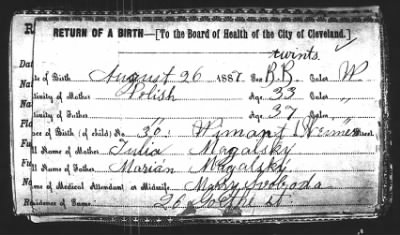 R RETURN OF A BIRTH—[To the Board of Health of the City of Cleveland.]
twints.
Dat
te of Birth August 26 1887. Sex B.B. Color W
Na
tivity of Mother Polish Age, 33 Color "
Na
tivity of Father " Age, 37 Color "
Pla
ace of Birth (of child) No 30. Street
Fu
ll Name of Mother Julia Magalsky
Fu
ll Name of Father Marian Magalsky
Name of Medical Attendant or Midwife, Mary Svoboda
Residence of Same, 26 st.